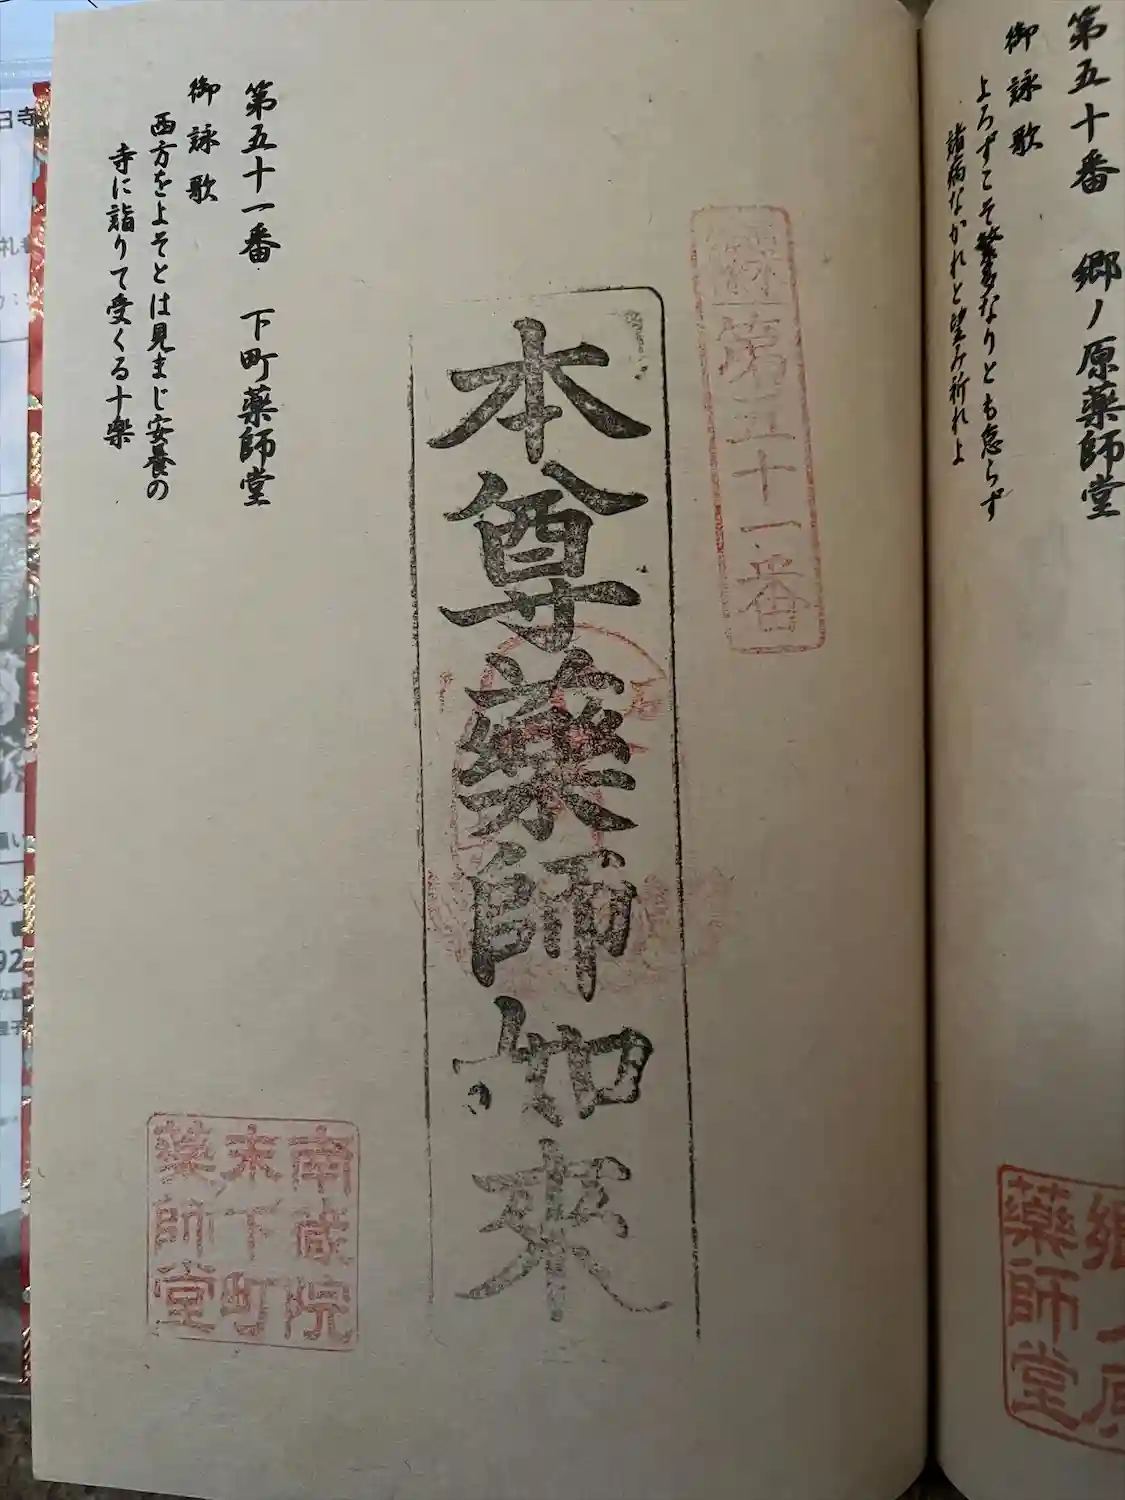 第五十番　郷ノ原薬師堂
御詠歌
よろずこそ繁多なりとも怠らず
諸病なかれと望み祈れよ
薬師堂
第五十一番
本尊薬師如来
第五十一番　下町薬師堂
御詠歌
西方をよそとは見まじ安養の
寺に詣りて受くる十楽
南蔵院
末下町
薬師堂